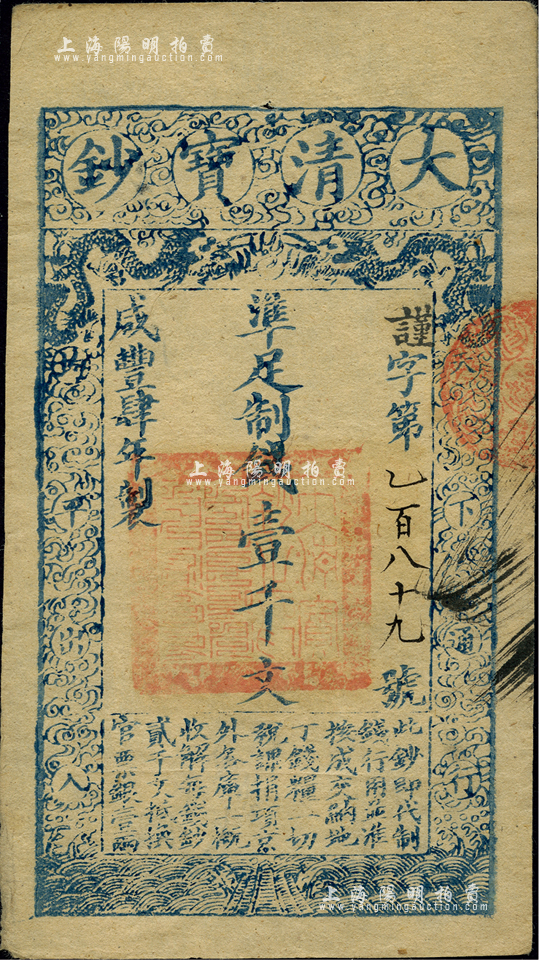 上海陽明拍賣
www.yangmingauction.com
大清寶鈔
天下通行
謹字第乙百八十九號
準足制錢壹千文
咸豐肆年製
均平出入
上海陽明拍賣
www.yangmingauction.com
此鈔即代制
錢行用並准
按成交納地
丁錢糧一切
稅課捐項京
外各庫一概
收解每錢鈔
貳千文抵換
官票銀壹兩
上海陽明拍賣
www.yangmingauction.com